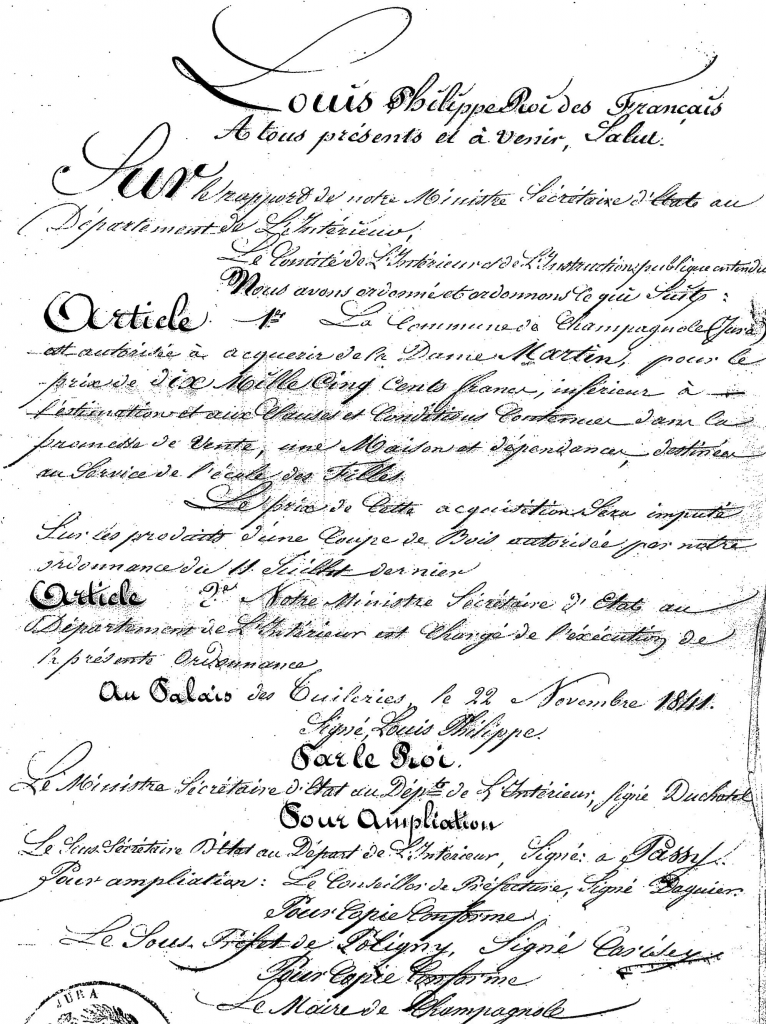 Louis Philippe Roi des Français
A tous présents et à venir, Salut.
Sur le rapport de notre Ministre Sécrétaire d'Etat au
Département de L'Intérieur.
Le Comité de L'Intérieur et de L'Instruction publique entendu
Nous avons ordonné et ordonnons ce qui Suit :
Article 1er La Commune de Champagnole (Jura)
est autorisée à acquerir de la Dame Martin, pour le
prix de dix Mille Cinq Cents francs, inférieur à
l'estimation et aux Clauses et Conditions Contenues dans la
promesse de Vente, une Maison et dépendances, destinées
au Service de l'école des Filles.
Le prix de Cette acquisition Sera imputé
Sur les produits d'une Coupe de Bois autorisée par notre
ordonnance du 11 Juillet dernier
Article 2e Notre Ministre Sécrétaire d'Etat au
Département de L'Intérieur est Chargé de l'éxécution de
la présente Ordonnance
Au Palais des Tuileries, le 22 Novembre 1841.
Signé, Louis Philippe.
Par le Roi.
Le Ministre Sécrétaire d'Etat au Dépt de L'Intérieur, signé Duchatel
Pour Ampliation
Le Sous Sécrétaire D'Etat au Départ de L'Interieur, Signé: a Passy.
Pour ampliation : Le Conseiller de Préfecture, Signé
Pour Copie Conforme
Le Sous-Préfet de Poligny, Signé
Pour Copie Conforme
Le Maire de Champagnole
JURA